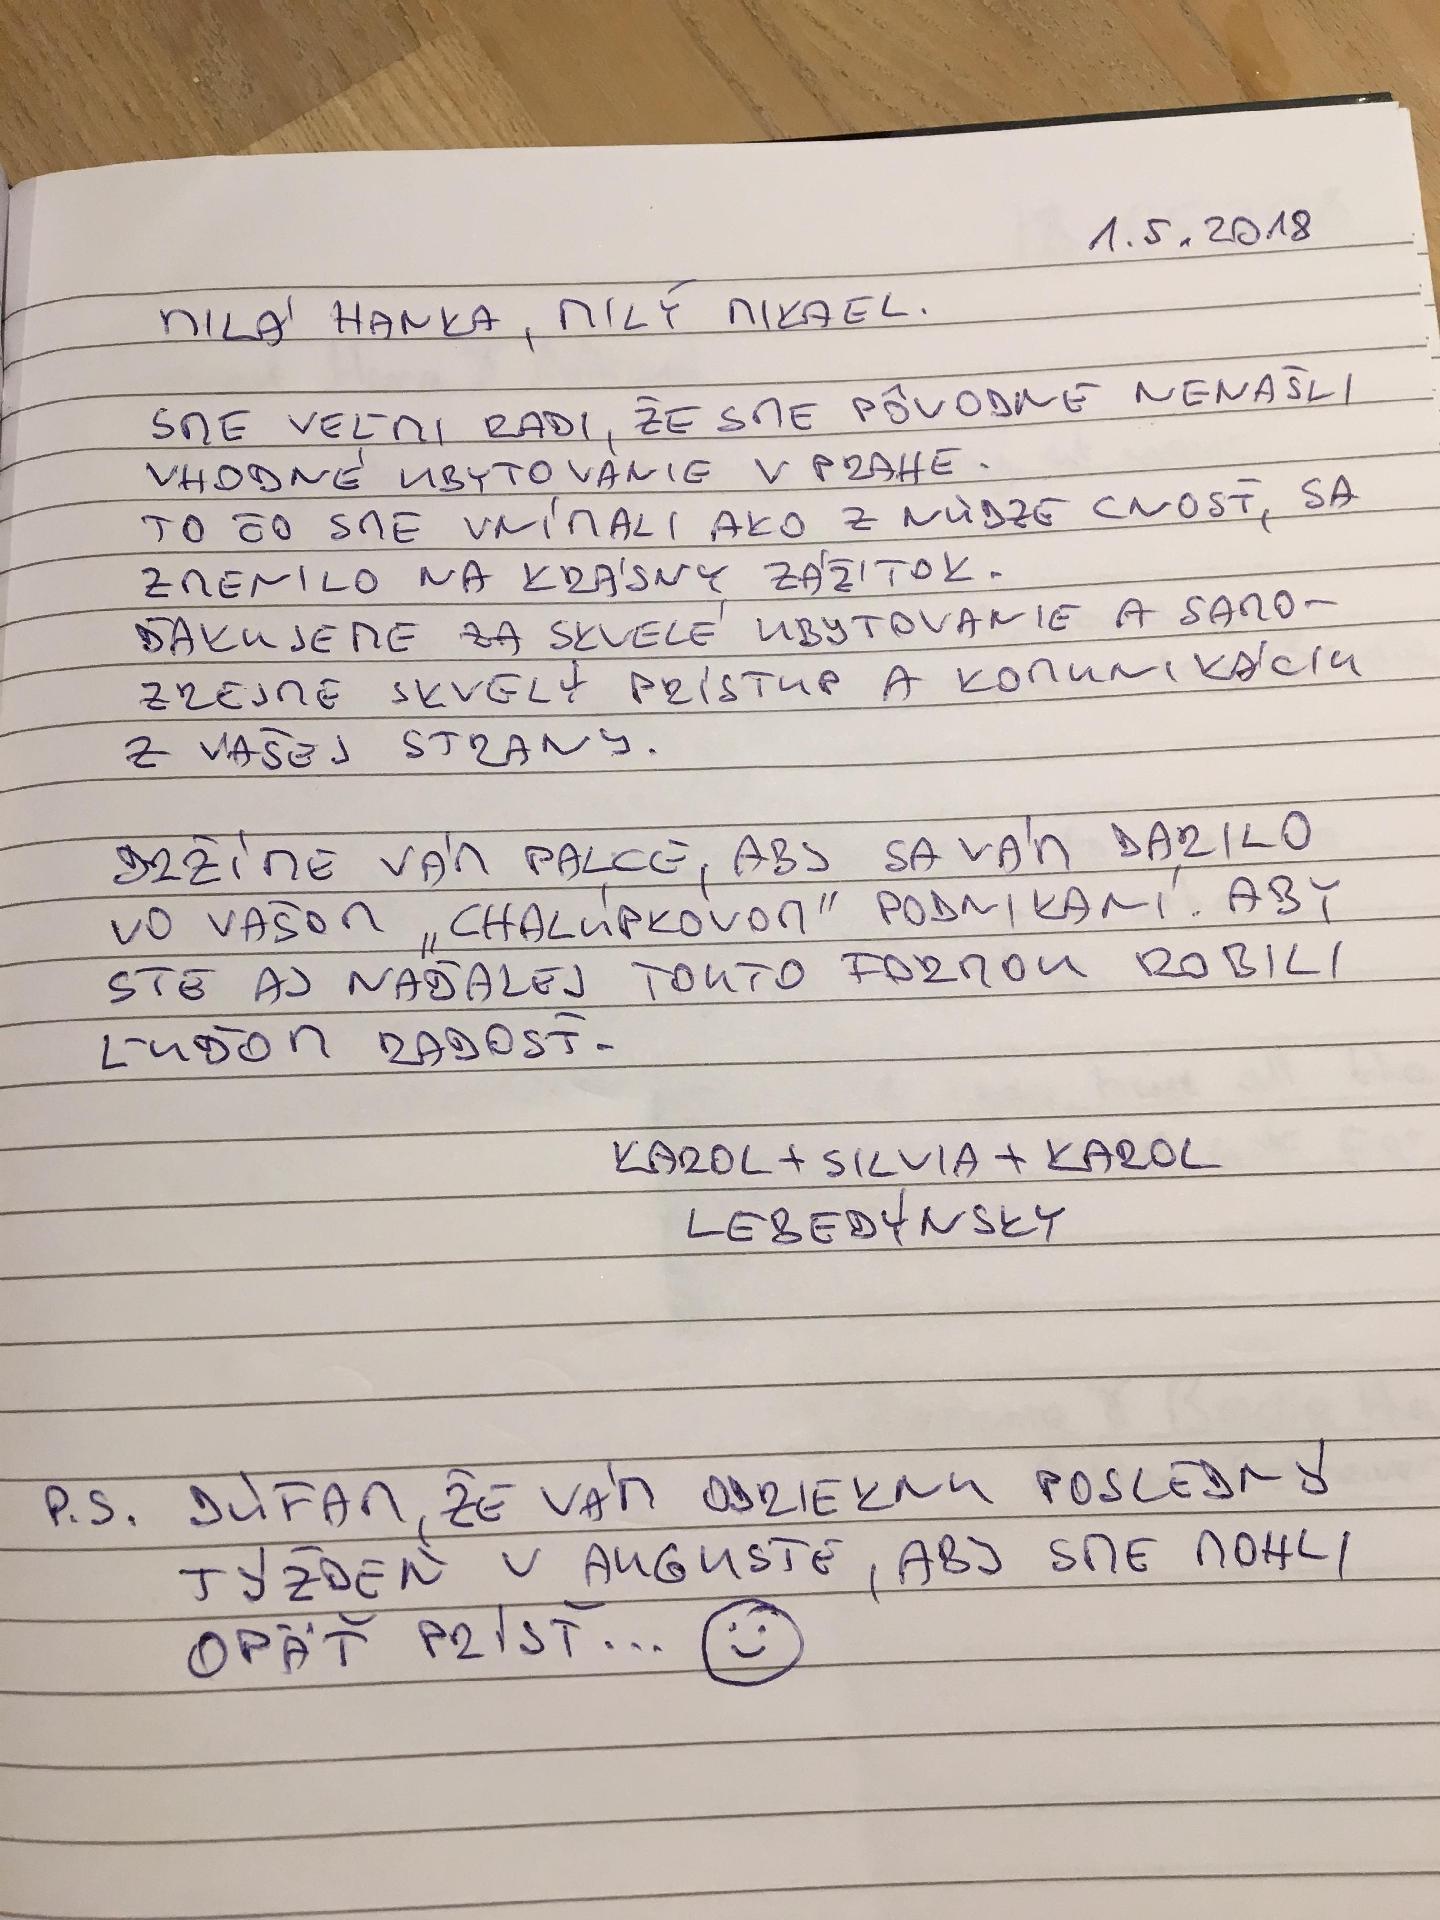 1.5.2018
MILÁ HANKA, MILÝ MIKAEL.
SME VEĽMI RADI, ŽE SME PÔVODNE NENAŠLI
VHODNÉ UBYTOVANIE V PRAHE.
TO ČO SME VNÍMALI AKO Z NÚDZE CNOSŤ, SA
ZMENILO NA KRÁSNY ZÁŽITOK.
ĎAKUJEME ZA SKVELÉ UBYTOVANIE A SAMO-
ZREJME SKVELÝ PRÍSTUP A KOMUNIKÁCIU
Z VAŠEJ STRANY.
DRŽÍME VÁM PALCE, ABY SA VÁM DARILO
VO VAŠOM „CHALÚPKOVOM" PODNIKANÍ. ABY
STE AJ NAĎALEJ TOUTO FORMOU ROBILI
ĽUĎOM RADOSŤ.
KAROL + SILVIA + KAROL
LEBEDÝNSKY
P.S. DÚFAM, ŽE VÁM ODRIEKNU POSLEDNÝ
TÝŽDEŇ V AUGUSTE, ABY SME MOHLI
OPÄŤ PRÍSŤ...